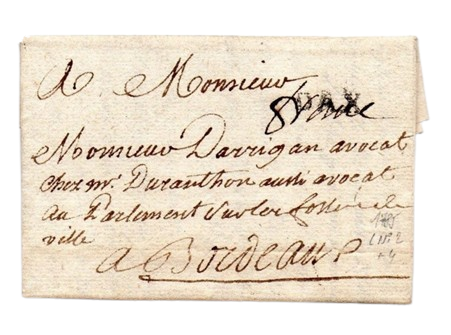 A Monsieur
DAX
Monsieur Darrigan avocat
chez mr. Duranthon aussi avocat
au Parlement sur les fossés de
ville
a Bordeaux